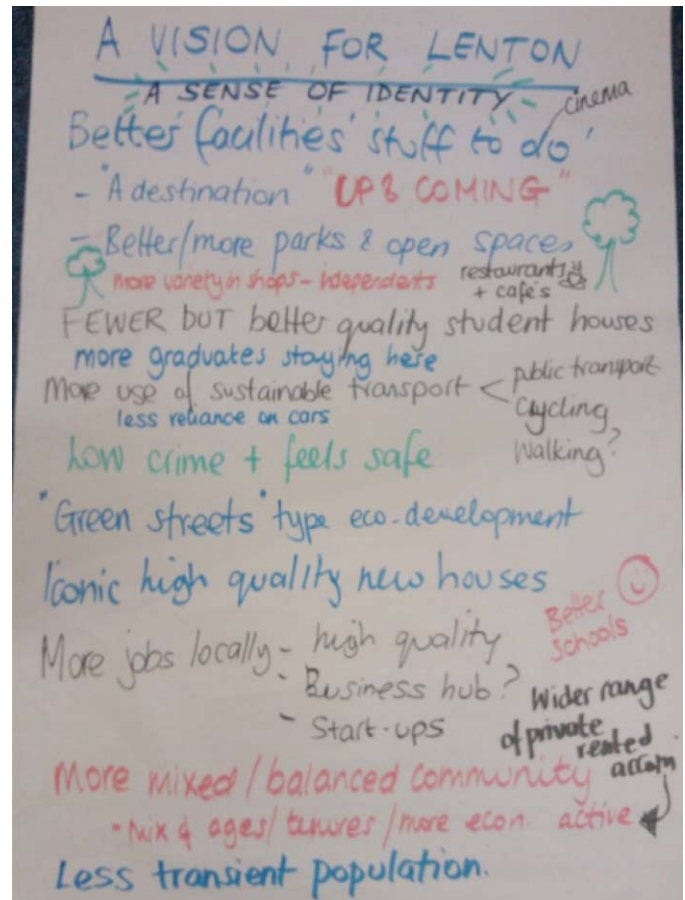 A VISION FOR LENTON
A SENSE OF IDENTITY
cinema
Better facilities 'stuff to do'
- "A destination" "UP & COMING"
- Better/more parks & open spaces
more variety in shops - independents
restaurants
+ cafés
FEWER BUT better quality student houses
more graduates staying here
More use of sustainable transport < public transport
less reliance on cars
Cycling
Walking?
Low crime + feels safe
"Green streets" type eco-development
Iconic high quality new houses
Better
Schools
More jobs locally - high quality
- Business hub?
- Start-ups
Wider range
of private
rented
accom
More mixed/balanced community
- mix of ages/tenures/more econ. active
Less transient population.